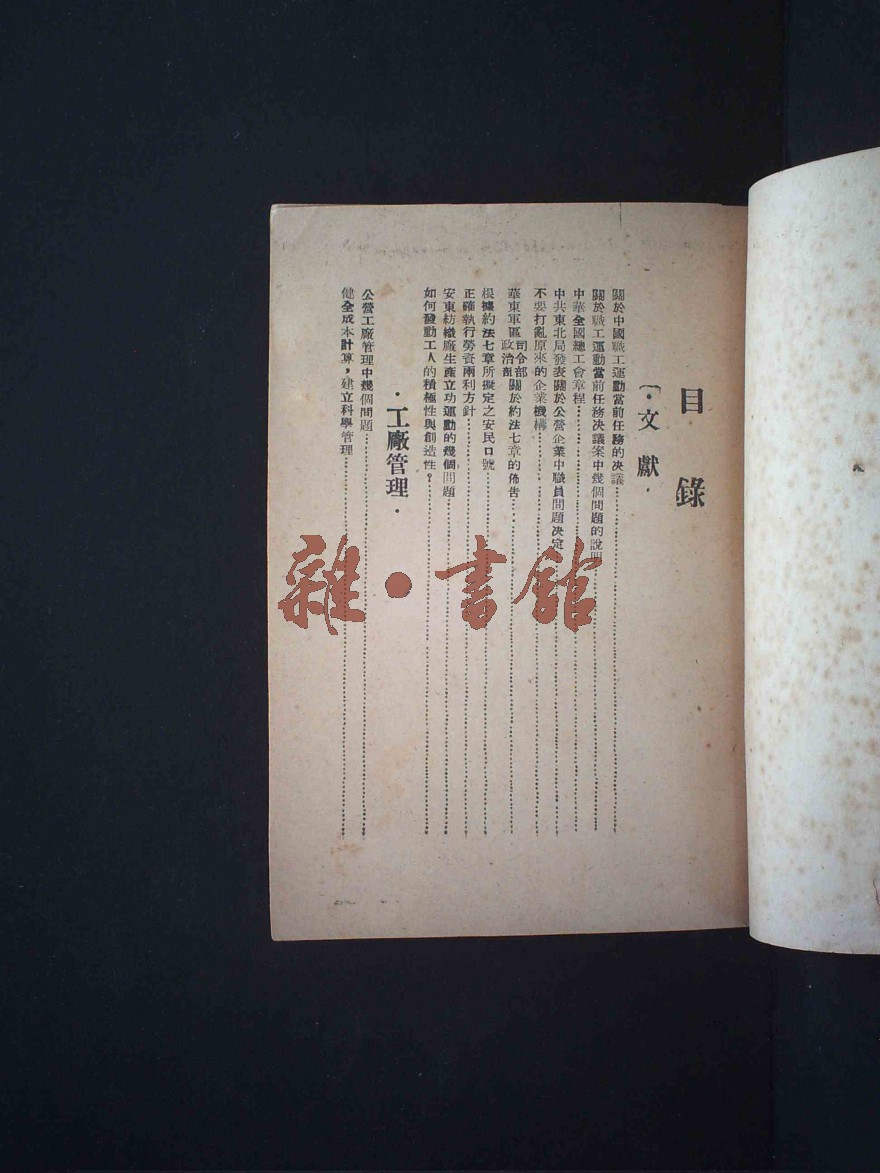 目錄
·文獻·
關於中國職工運動當前任務的决議
關於職工運動當前任務决議案中幾個問題的說明
中華全國總工會章程
中共東北局發表關於公營企業中職員問題决定
不要打亂原來的企業機構
華東軍區司令部政治部關於約法七章的佈告
根據約法七章所擬定之安民口號
正確執行勞資兩利方針
安東紡織廠生產立功運動的幾個問題
如何發動工人的積極性與創造性
·工廠管理·
公營工廠管理中幾個問題
健全成本計算，建立科學管理
雜·書館